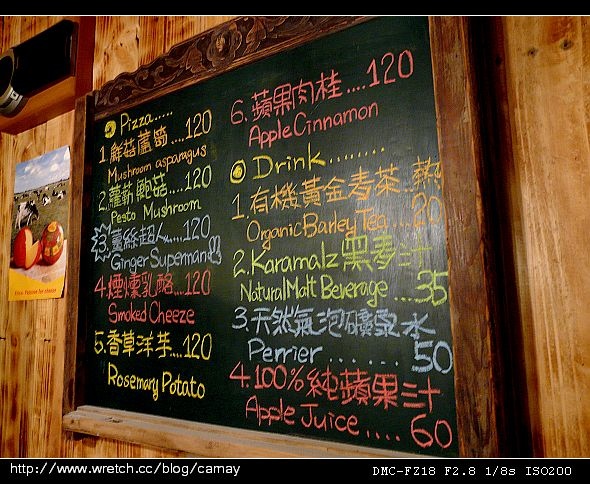 Pizza.....
1. 鮮菇蘆筍....120
Mushroom asparagus
2. 蘿勒鮑菇.....120
Pesto Mushroom
3. 薑絲超人.....120
Ginger Superman
4. 煙燻乳酪...120
Smoked Cheeze
5. 香草洋芋...120
Rosemary Potato
6. 蘋果肉桂....120
Apple Cinnamon
Drink........
1. 有機黃金麥茶..熱
Organic Barley Tea....20
2. Karamalz 黑麥汁
Natural Malt Beverage ....35
3. 天然氣泡礦泉水
Perrier ....... 50
4. 100% 純蘋果汁
Apple Juice ..... 60
http://www.wretch.cc/blog/camay
DMC-FZ18 F2.8 1/8s ISO200